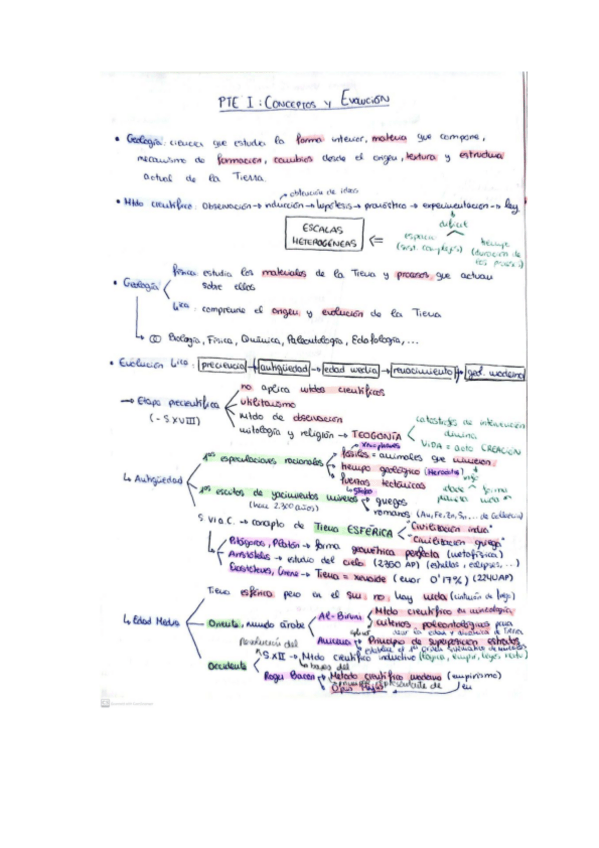 PTE I: CONCEPTOS Y EVOLUCIÓN
• Geología: ciencia que estudia la forma interior, materia que compone,
mecanismo de formación, cambios desde el origen, textura y estructura
actual de la Tierra.
obtención de ideas
• Mtdo científico: Observación → inducción → hipótesis → pronóstico → experimentación → ley
difícil
ESCALAS
HETEROGÉNEAS <=
espacio (sist. complejos)
tiempo (duración de los procesos)
física: estudia los materiales de la Tierra y procesos que actúan
sobre ellos
• Geología
Hca: comprende el origen y evolución de la Tierra
Biología, Física, Química, Paleontología, Edafología, ...
• Evolución Hca: preciencia → antigüedad → edad media → renacimiento → geol. moderna
no aplica mtdos científicos
→ Etapa precientífica utilitarismo
(- S XVIII) Mtdo de observación
mitología y religión → TEOGONÍA
catástrofes de intervención
divina
VIDA = acto CREACIÓN
↳ Antigüedad
1as especulaciones racionales
fósiles = animales que vivieron
tiempo geológico (Herodoto)
fuerzas tectónicas
1os escritos de yacimientos mineros
(hace 2.300 años)
griegos
romanos (Au, Fe, Zn, Sn, ... de
S. VI a.C. → concepto de Tierra ESFÉRICA
"Civilización india"
"Civilización griega"
Pitágoras, Platón → forma geométrica perfecta (metafísica)
Aristóteles → estudio del cielo (2350 AP) (estrellas, eclipses, ...)
Eratóstenes, → Tierra = (error 0'17%) (2240 AP)
Tierra esférica pero en el sur no hay nada (cinturón de fuego)
↳ Edad Media
Oriente, mundo árabe
Al-Biruni
Mtdo científico en mineralogía
criterios paleontológicos para
Avicena → Principio de superposición estratos
Occidente
S XII → Mtdo científico inductivo
Roger Bacon → Método científico moderno (empirismo)
Opus Majus